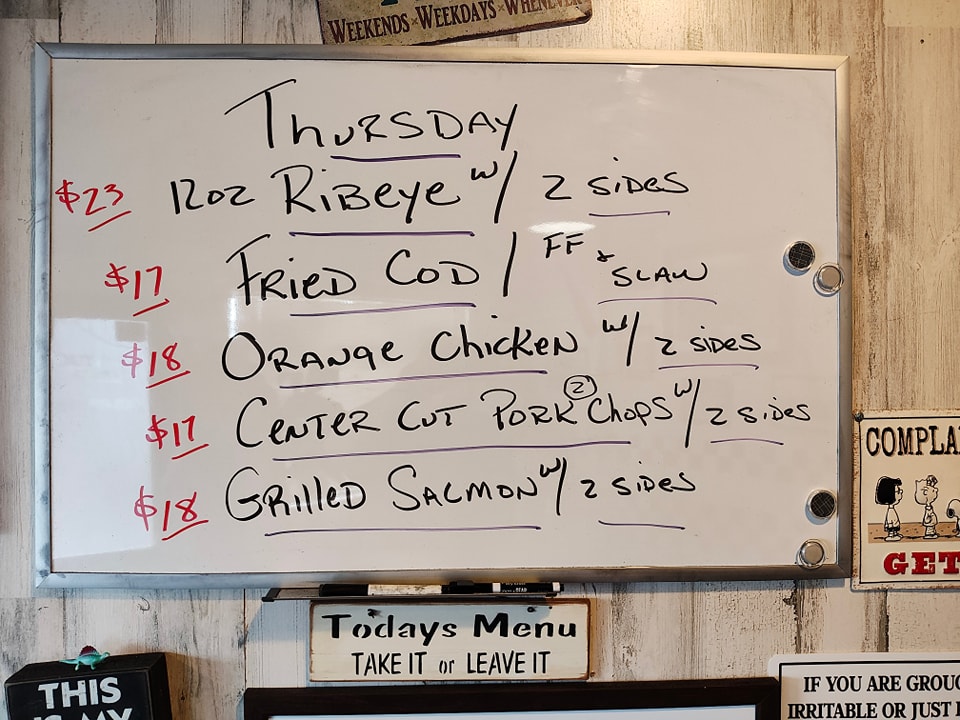 WEEKENDS WEEKDAYS WHENEVER
THURSDAY
$23 12oz RIBEYE w/ 2 SIDES
$17 FRIED COD / FF & SLAW
$18 ORANGE CHICKEN w/ 2 SIDES
$17 CENTER CUT PORK (2) CHOPS w/ 2 SIDES
$18 GRILLED SALMON w/ 2 SIDES
COMPLA
GET
Todays Menu
TAKE IT or LEAVE IT
THIS
IS MY
IF YOU ARE GROUC
IRRITABLE OR JUST